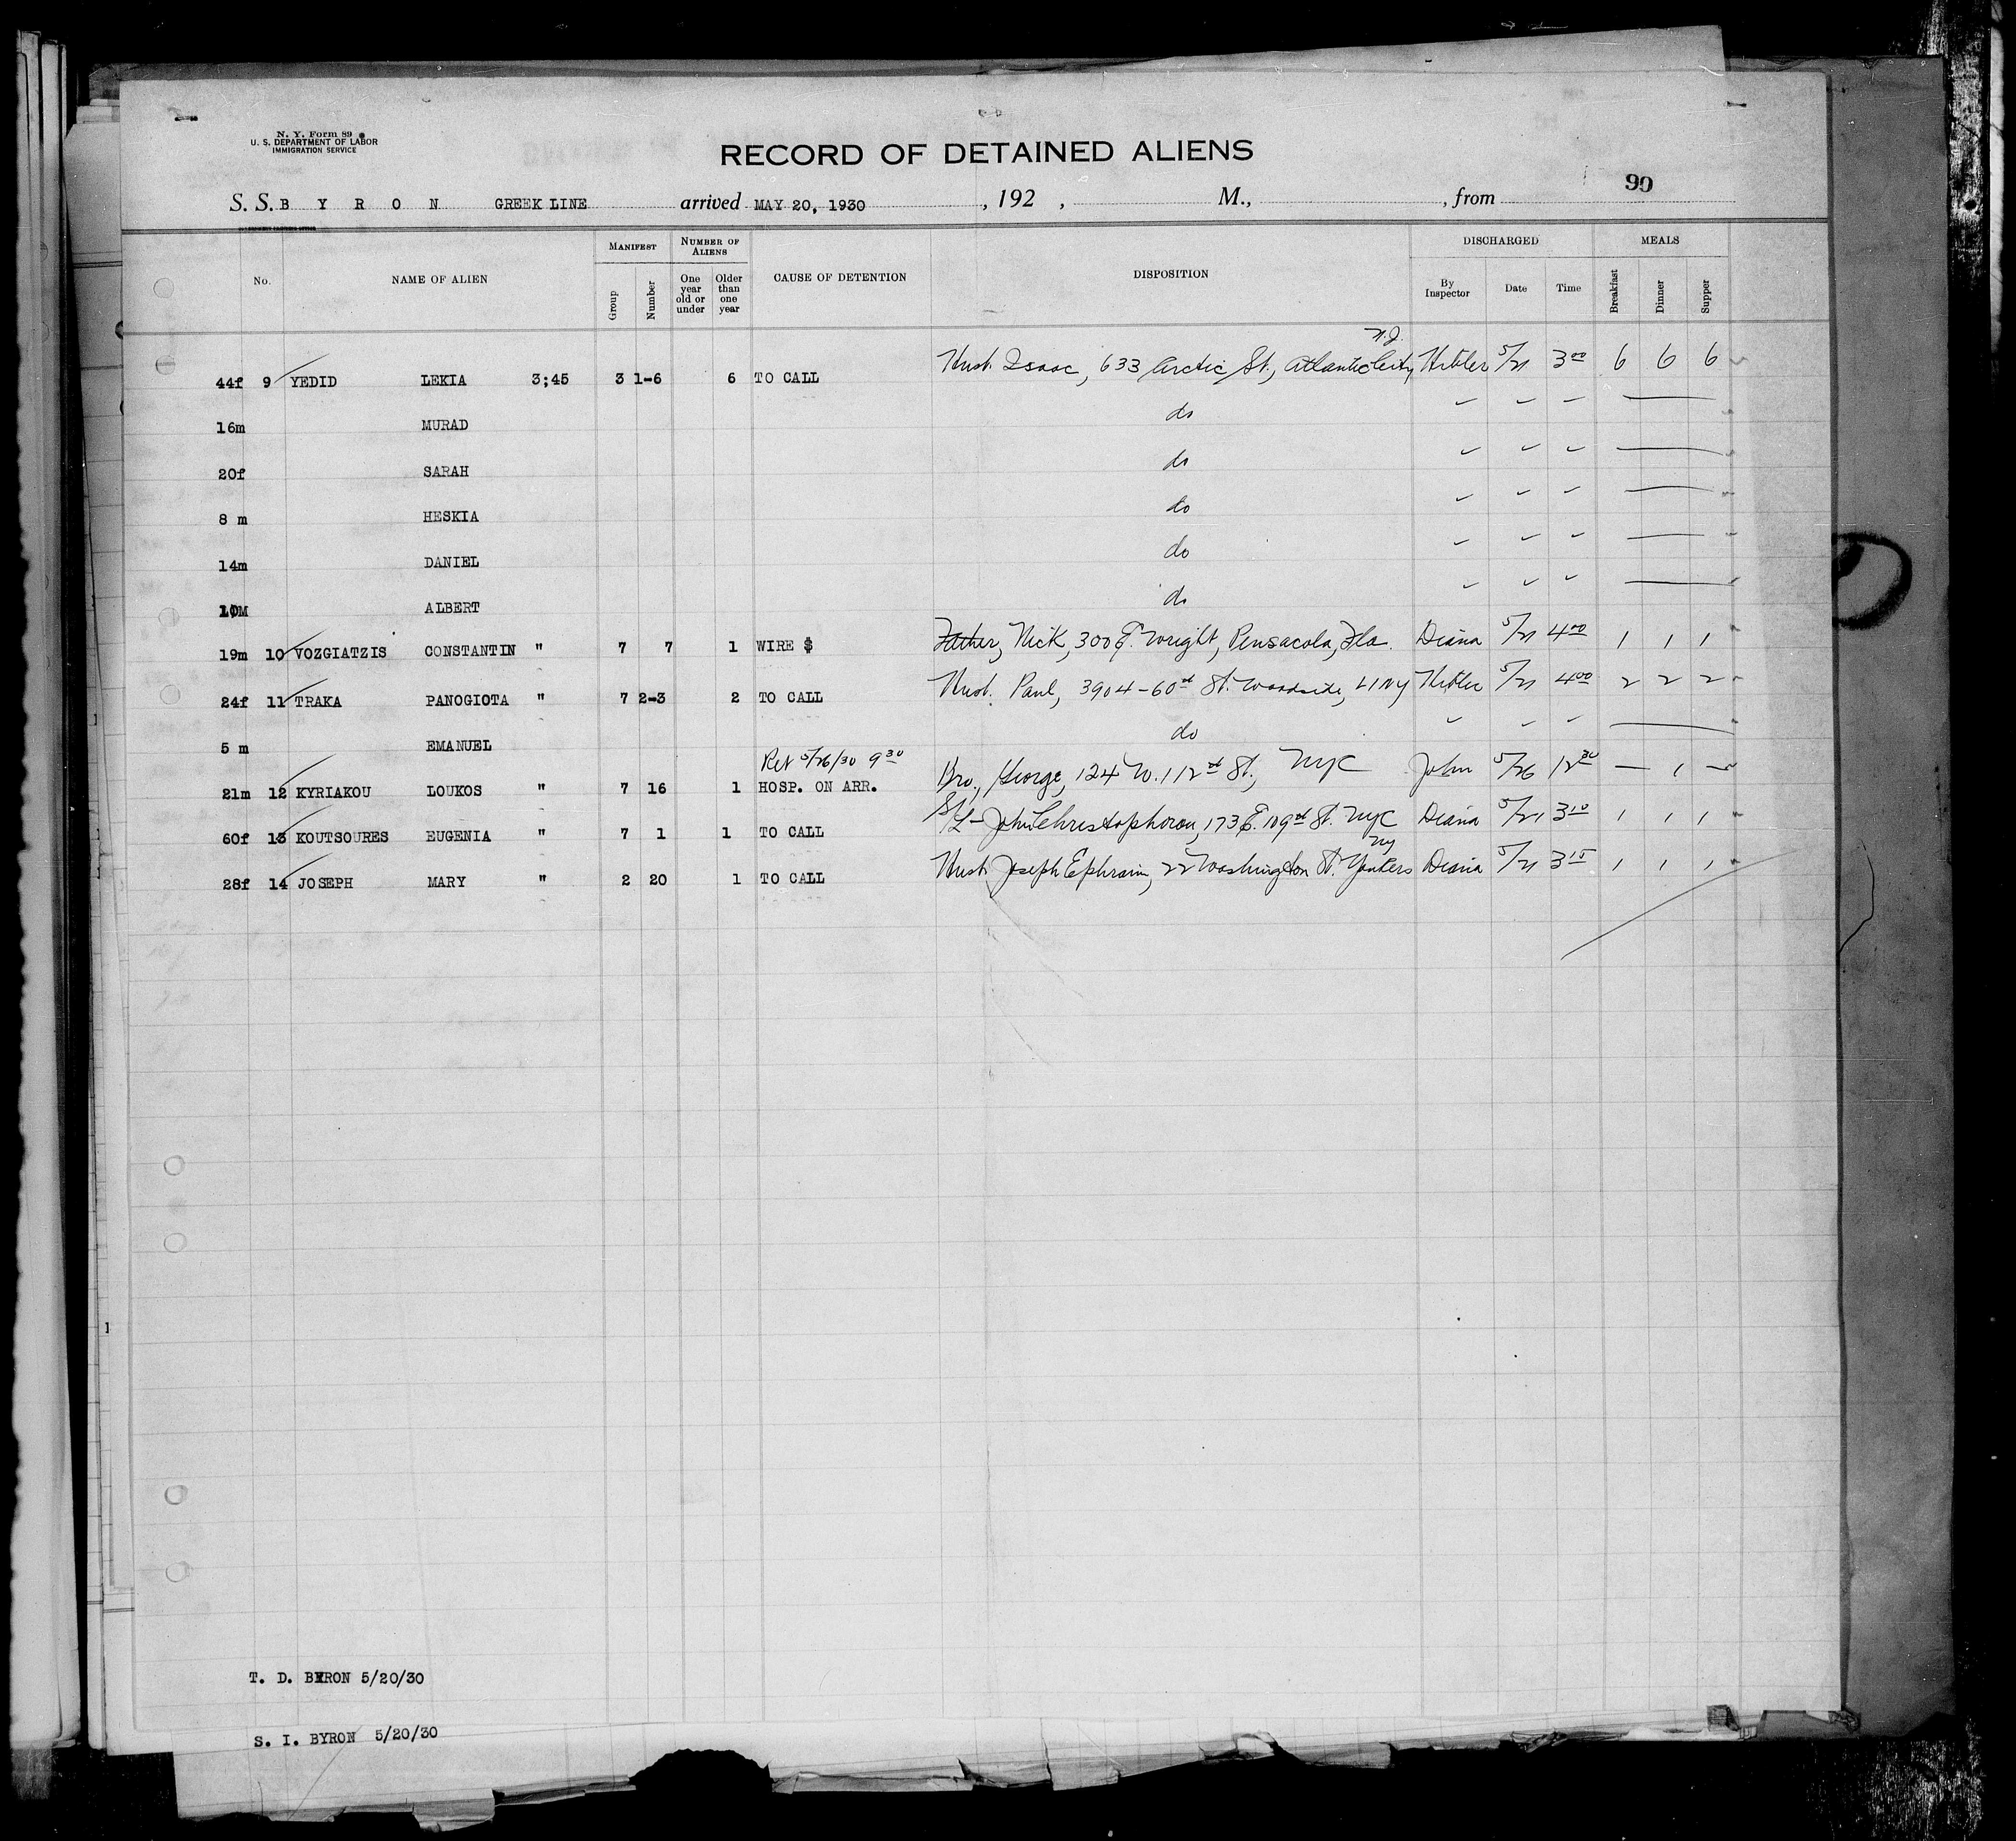 N. Y. Form 89
U. S. DEPARTMENT OF LABOR
IMMIGRATION SERVICE
RECORD OF DETAINED ALIENS
90
S. S. B Y R O N GREEK LINE arrived MAY 20, 1930 , 192 , M., , from
No. NAME OF ALIEN MANIFEST NUMBER OF ALIENS CAUSE OF DETENTION DISPOSITION DISCHARGED MEALS
Group Number One year old or under Older than one year By Inspector Date Time Breakfast Dinner Supper
N.J.
44f 9 YEDID LEKIA 3;45 3 1-6 6 TO CALL Husb. Isaac, 633 Arctic St., Atlantic City, 5/21 3 00 6 6 6
16m MURAD do
20f SARAH do
8 m HESKIA do
14m DANIEL do
ALBERT do
19m 10 VOZGIATZIS CONSTANTIN " 7 7 1 WIRE $ Father, Nick, 300 E. Wright, Pensacola, Fla. Diana 5/21 4 00 1 1 1
24f 11 TRAKA PANOGIOTA " 7 2-3 2 TO CALL Husb. Paul, 3904-60th St. Woodside, LINY 5/21 4 00 2 2 2
5 m EMANUEL do
Ret 5/26/30 9 30
21m 12 KYRIAKOU LOUKOS " 7 16 1 HOSP. ON ARR. Bro., George, 124 W. 112th St., NYC John 5/26 12 30 — 1 —
60f 13 KOUTSOURES EUGENIA " 7 1 1 TO CALL S/L- John Christophorou, 173 E. 109th St. NYC Diana 5/21 3 10 1 1 1
NY
28f 14 JOSEPH MARY " 2 20 1 TO CALL Husb. Joseph Ephraim, 22 Washington St. Yonkers Diana 5/21 3 15 1 1 1
T. D. BYRON 5/20/30
S. I. BYRON 5/20/30